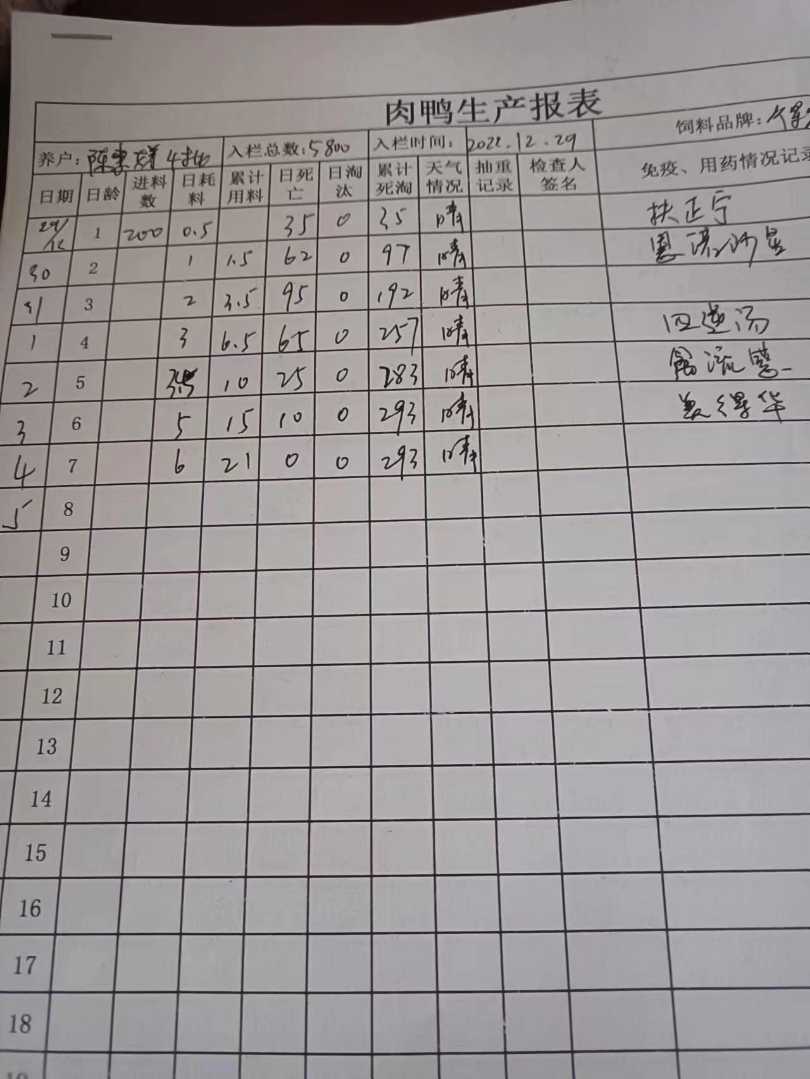 肉鸭生产报表
养户: 陈 4批 入栏总数: 5800 入栏时间: 2022.12.29 饲料品牌:
日期 日龄 进料数 日耗料 累计用料 日死亡 日淘汰 累计死淘 天气情况 抽重记录 检查人签名 免疫、用药情况记录
29/12 1 200 0.5 35 0 35 晴 扶正宁
30 2 1 1.5 62 0 97 晴
31 3 2 3.5 95 0 192 晴
1 4 3 6.5 65 0 257 晴 四逆汤
2 5 3.5 10 25 0 283 晴
3 6 5 15 10 0 293 晴
4 7 6 21 0 0 293 晴
5 8
9
10
11
12
13
14
15
16
17
18
19